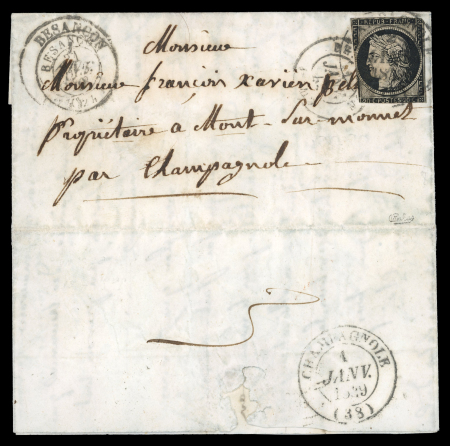 BESANÇON
BESANÇON
REPUB. FRANC.
Monsieur
Monsieur françois xavier
propriétaire a Mont-Sur-monnet
par Champagnole
CHAMPAGNOLE
1
JANV.
1849
(38)